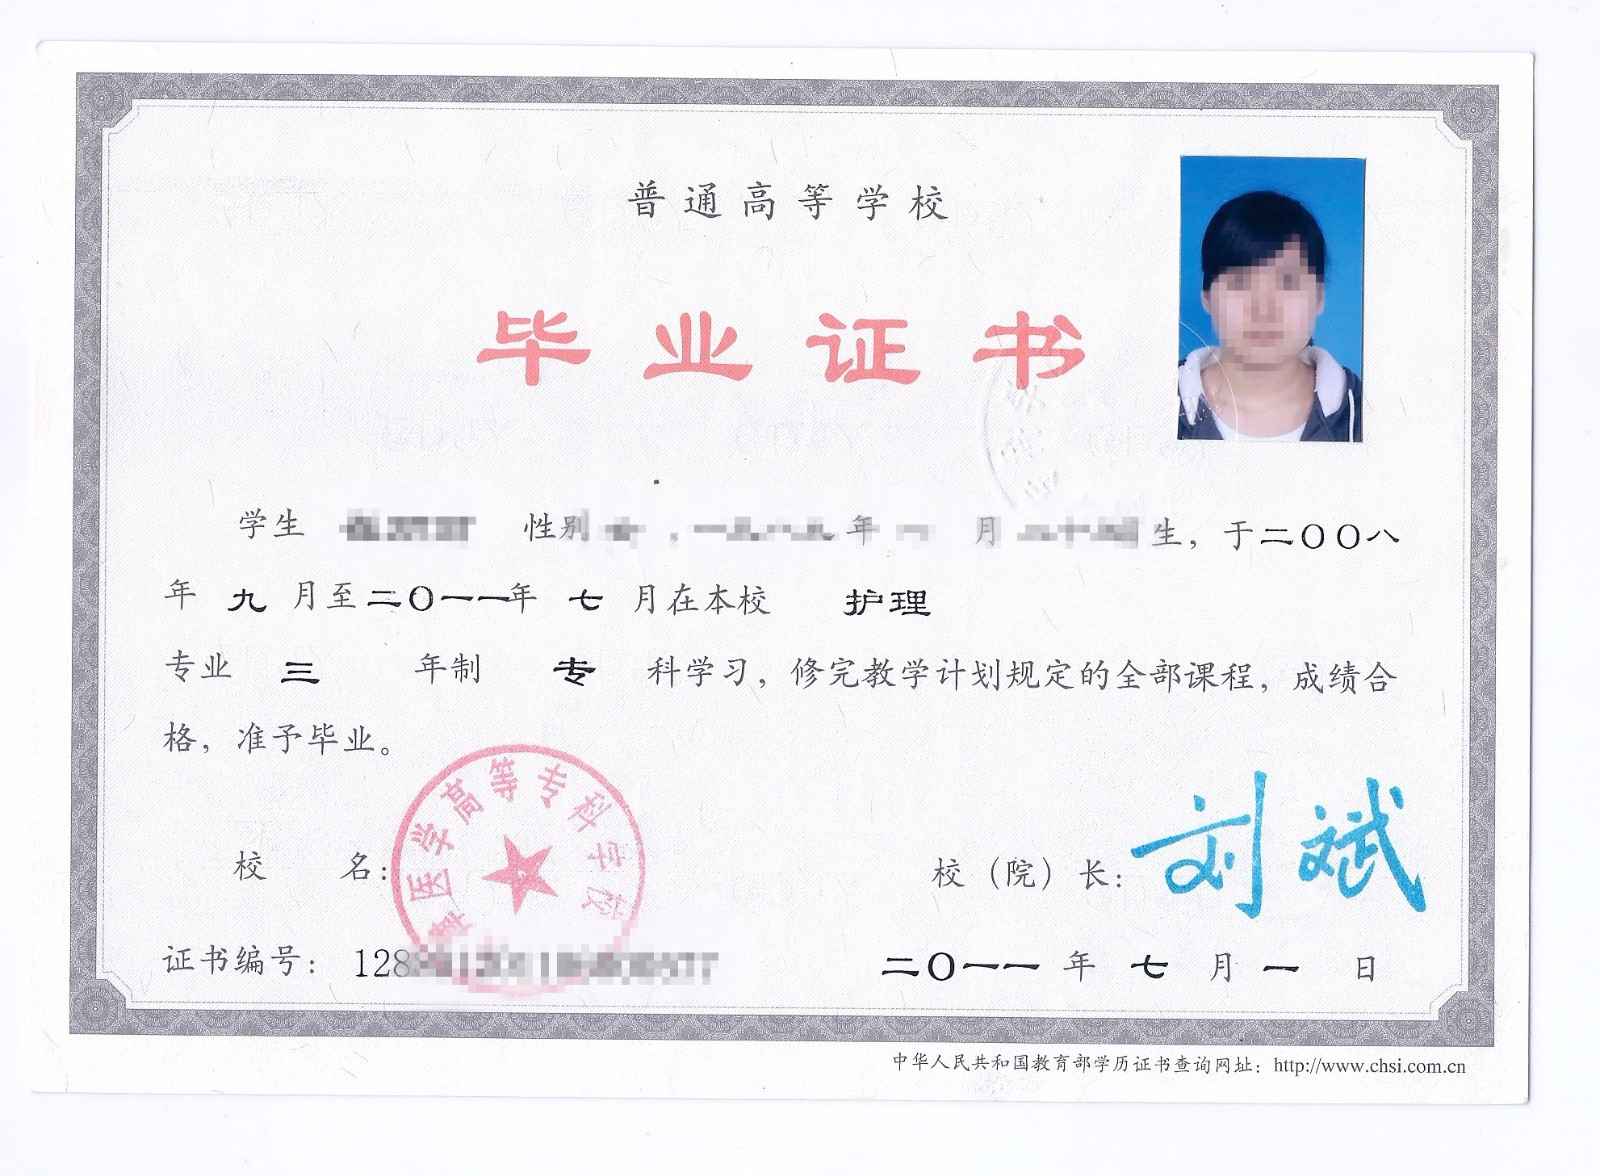 普通高等学校
毕业证书
学生 性别 年 月 生，于二〇〇八
年 九 月至二〇一一年 七 月在本校 护理
专业 三 年制 专 科学习，修完教学计划规定的全部课程，成绩合
格，准予毕业。
医学高等专科学校
校 名：
校（院）长：刘斌
证书编号：128
二〇一一 年 七 月 一 日
中华人民共和国教育部学历证书查询网址：http://www.chsi.com.cn